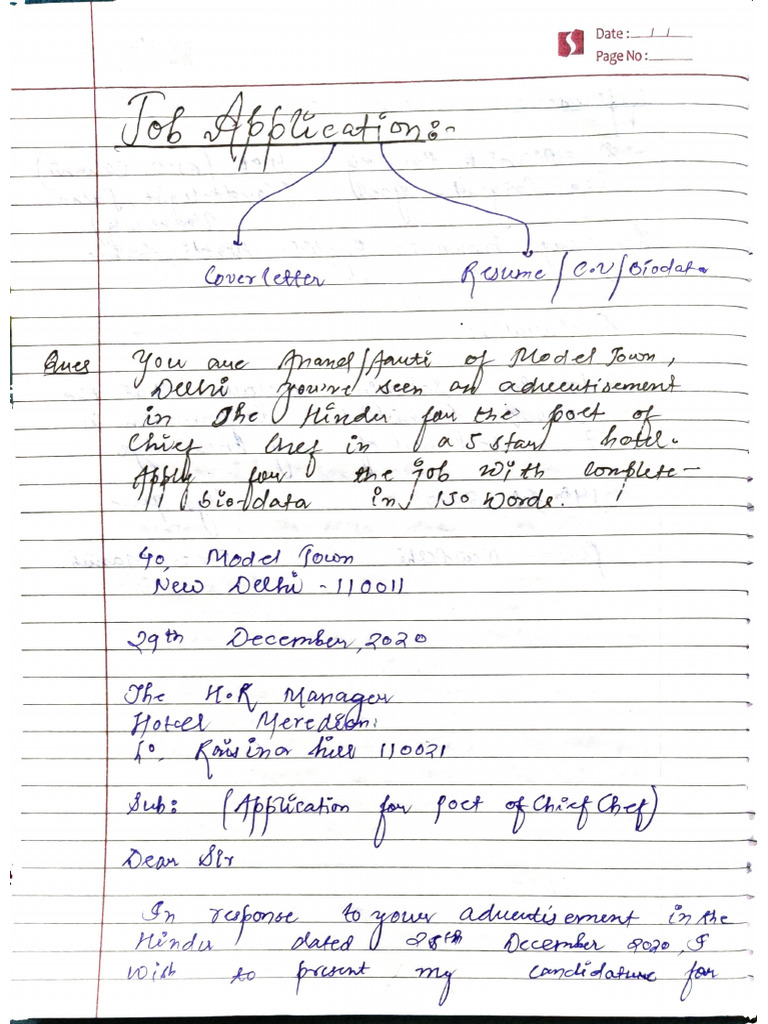 Date: / /
Page No:
Job Application:-
Cover letter
Resume/C.V/Biodata
Ques You are Anand/Aauti of Model Town,
Delhi you've seen an advertisement
in The Hindu for the post of
Chief Chef in a 5 star hotel.
Apply for the job with complete-
bio-data in 150 words.
40, Model Town
New Delhi - 110011
29th December, 2020
The H.R Manager
Hotel Meredian.
Raisina hill 110021
Sub: (Application for post of Chief Chef)
Dear Sir
In response to your advertisement in the
Hindu dated 28th December 2020, I
wish to present my candidature for